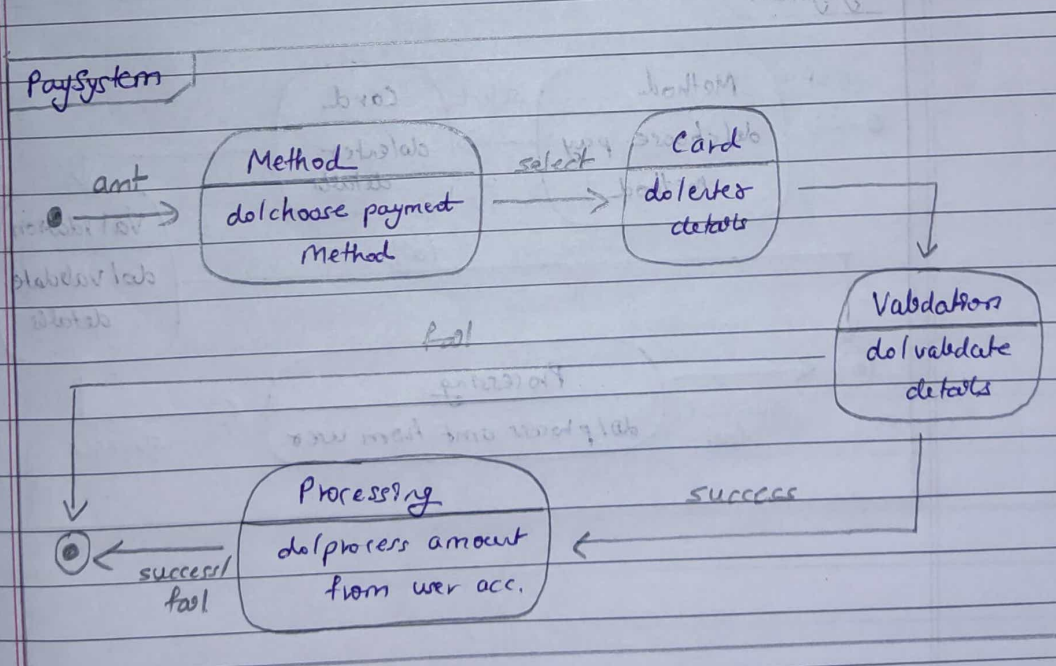 PaySystem
amt
Method
do/choose payment
Method
select
Card
do/enter
details
Validation
do/validate
details
fail
success
Processing
do/process amount
from user acc.
success/
fail